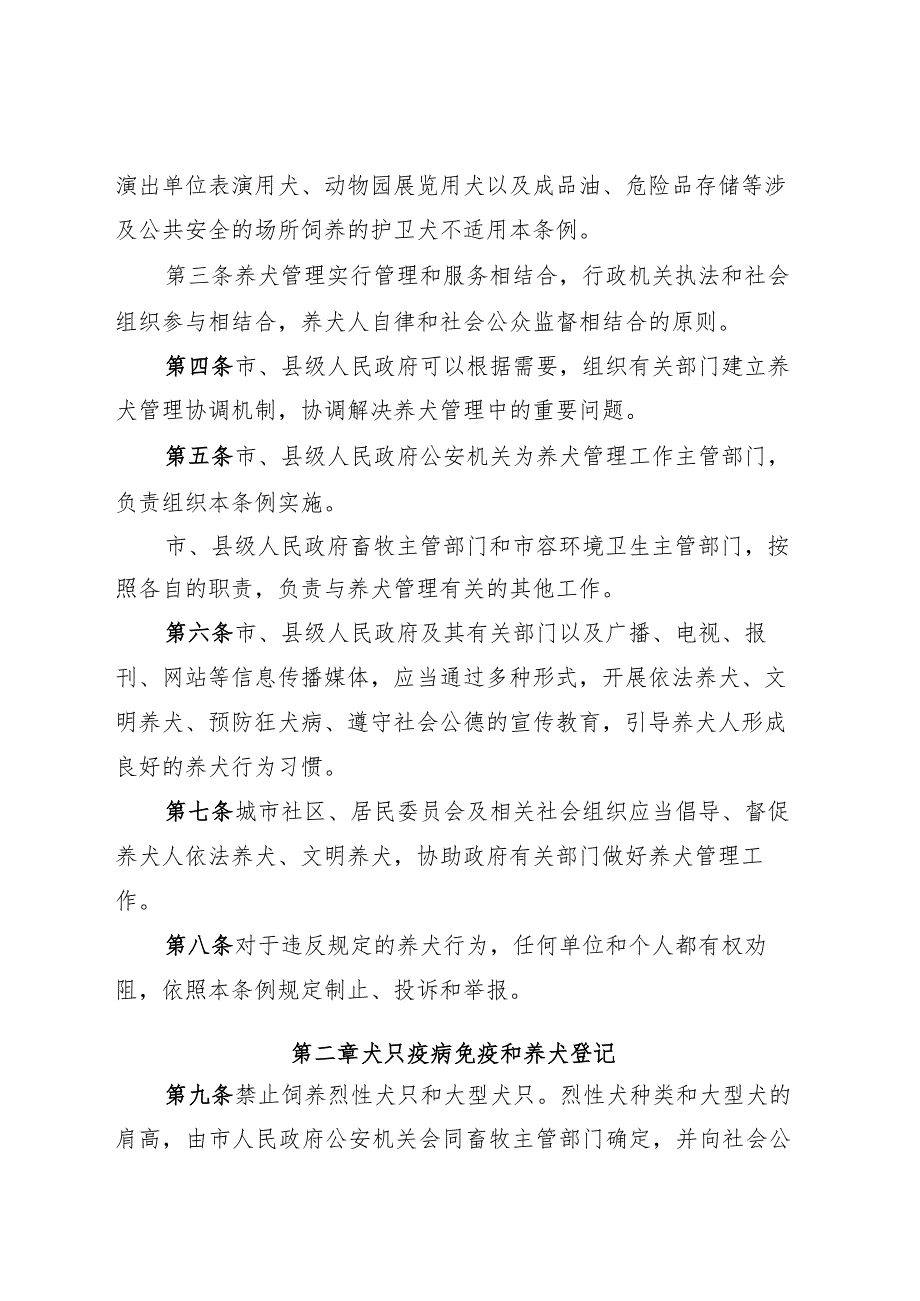 演出单位表演用犬、动物园展览用犬以及成品油、危险品存储等涉
及公共安全的场所饲养的护卫犬不适用本条例。
第三条养犬管理实行管理和服务相结合，行政机关执法和社会
组织参与相结合，养犬人自律和社会公众监督相结合的原则。
第四条市、县级人民政府可以根据需要，组织有关部门建立养
犬管理协调机制，协调解决养犬管理中的重要问题。
第五条市、县级人民政府公安机关为养犬管理工作主管部门，
负责组织本条例实施。
市、县级人民政府畜牧主管部门和市容环境卫生主管部门，按
照各自的职责，负责与养犬管理有关的其他工作。
第六条市、县级人民政府及其有关部门以及广播、电视、报
刊、网站等信息传播媒体，应当通过多种形式，开展依法养犬、文
明养犬、预防狂犬病、遵守社会公德的宣传教育，引导养犬人形成
良好的养犬行为习惯。
第七条城市社区、居民委员会及相关社会组织应当倡导、督促
养犬人依法养犬、文明养犬，协助政府有关部门做好养犬管理工
作。
第八条对于违反规定的养犬行为，任何单位和个人都有权劝
阻，依照本条例规定制止、投诉和举报。
第二章犬只疫病免疫和养犬登记
第九条禁止饲养烈性犬只和大型犬只。烈性犬种类和大型犬的
肩高，由市人民政府公安机关会同畜牧主管部门确定，并向社会公